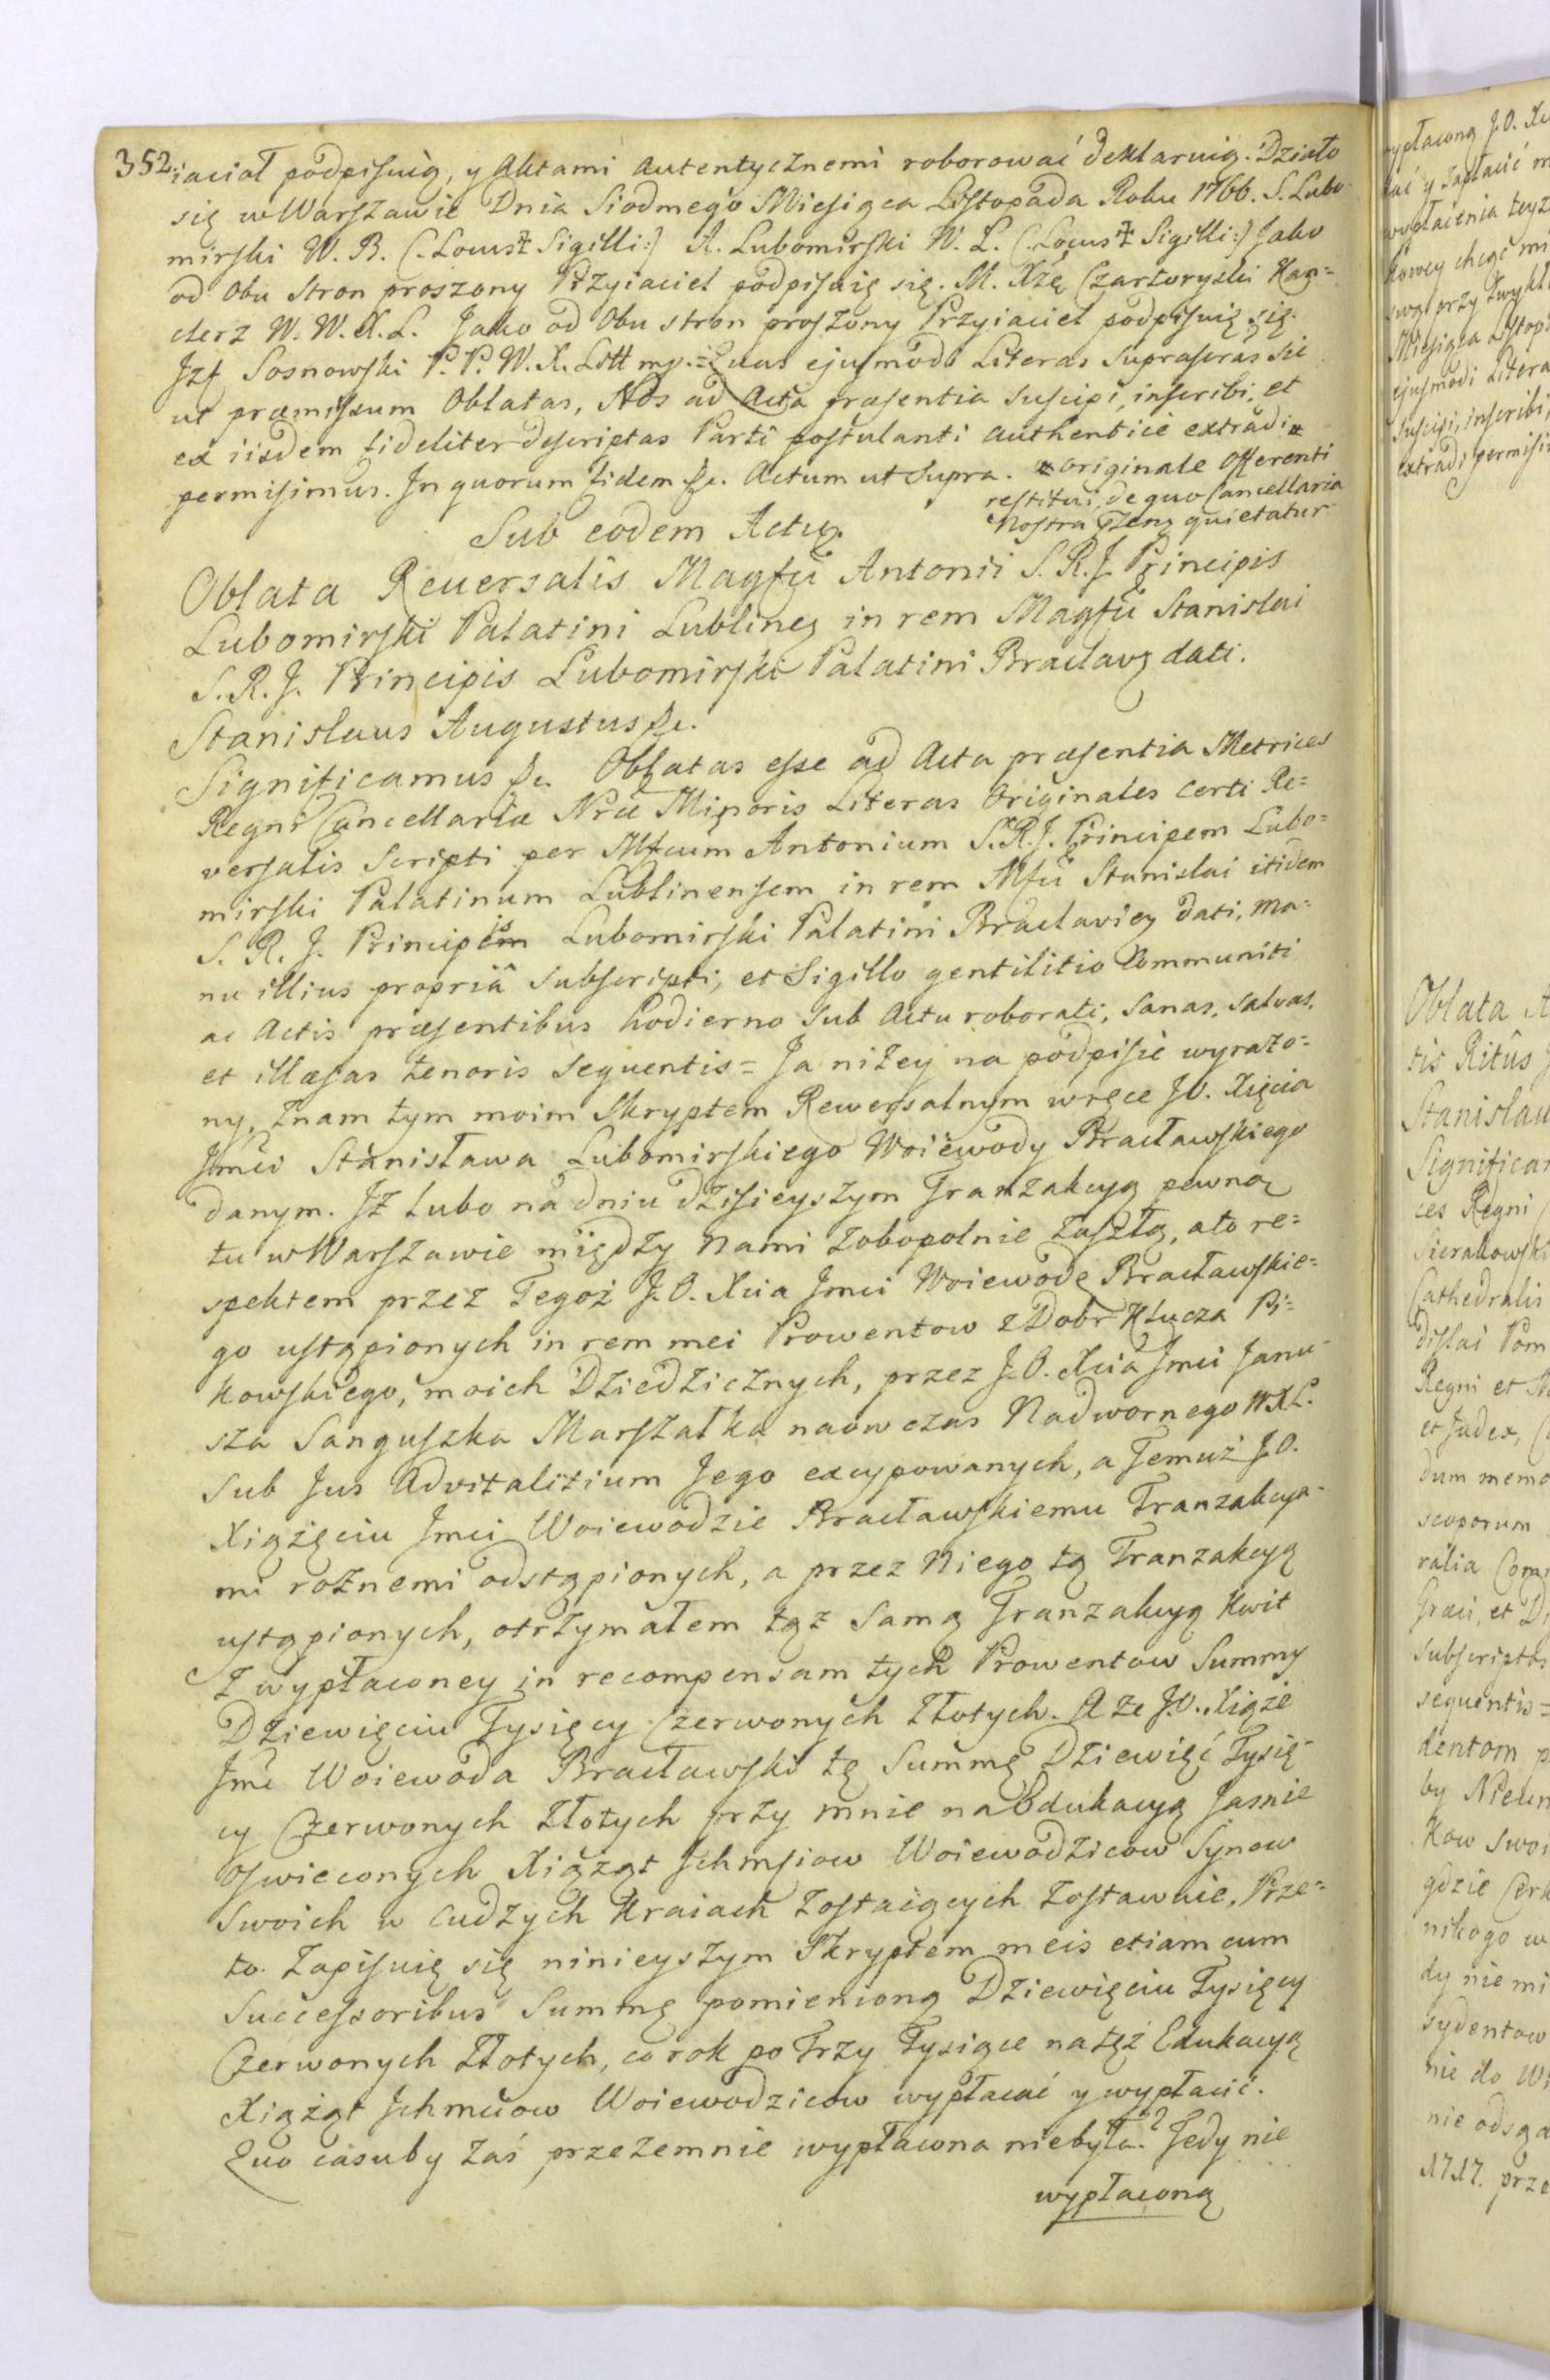 352. iaciał podpisuię, y Aktami autentycznemi roborować deklaruię. Działo
się w Warszawie Dnia Siodmego Miesięca Listopada Roku 1766. S. Lubo-
mirski W. B. (:Locus Sigilli:) A. Lubomirski W. L. (:Locus Sigilli:) Jako
od obu Stron proszony Przyiaciel podpisuię się. M. Xżę Czartoryski Kan=
clerz W. W. X. L. Jako od Obu stron proszony Przyiaciel podpisuię się.
Jzf Sosnowski P. P. W. X. Litt mp. = Quas ejusmodi Literas suprascras sic
ut præmissum Oblatas, Nos ad Acta præsentia suscipi, inscribi, et
ex iisdem fideliter descriptas Parti postulanti authentice extradi
permisimus. In quorum fidem &c. Actum ut supra. originale Offerenti
restitui, de quo Cancellaria
Nostra præns quietatur
Sub eodem Actu.
Oblata Reversalis Magfci Antonii S. R. J. Principis
Lubomirski Palatini Lublinen in rem Magfci Stanislai
S. R. J. Principis Lubomirski Palatini Braclav dati.
Stanislaus Augustus &c.
Significamus &c. Oblatas esse ad Acta præsentia Metrices
Regni Cancellariæ Nræ Minoris Literas Originales certi Re=
versalis Scripti per Mfcum Antonium S. R. J. Principem Lubo=
mirski Palatinum Lublinensem in rem Mfci Stanislai itidem
S. R. J. Principis Lubomirski Palatini Braclavien dati, ma=
nu illius propriâ subscripti, et Sigillo gentilitio communiti
ac Actis præsentibus hodierno sub Actu roborati, sanas, salvas,
et illæsas tenoris sequentis = Ja niżey na podpisie wyrażo=
ny, znam tym moim Skryptem Rewersalnym wręce J. O. Xięcia
Jmci Stanisława Lubomirskiego Woiewody Bracławskiego
danym. Jż lubo na dniu dzisieyszym Tranzakcyą pewną
tu w Warszawie między nami zobopolnie zaszłą, a to re=
spektem przez Tegoż J. O. Xcia Jmci Woiewodę Bracławskie=
go ustąpionych in rem mei Prowentow z Dobr Klucza Pi=
kowskiego, moich Dziedzicznych, przez J. O. Xcia Jmci Janu-
sza Sanguszka Marszałka naowczas Nadwornego W X L.
sub Jus Advitalitium Jego excypowanych, a Temuż J. O.
Xiążęciu Jmci Woiewodzie Bracławskiemu Tranzakcya-
mi rożnemi odstąpionych, a przez Niego tą Tranzakcyą
ustąpionych, otrzymałem tąż samą Tranzakcyą kwit
z wypłaconey in recompensam tych Prowentow Summy
Dziewięciu Tysięcy Czerwonych Złotych. A że J. O. Xiąże
Jmć Woiewoda Bracławski tę Summę Dziewięć Tysię-
cy Czerwonych Złotych przy mnie na Edukacyą Jasnie
Oswieconych Xiążąt Jchmsiow Woiewodzicow Synow
Swoich w cudzych Kraiach zostaiących zostawuie, Prze=
to zapisuię się ninieyszym Skryptem meis etiam cum
Successoribus Summę pomienioną Dziewięciu Tysięcy
Czerwonych Złotych, co rok po Trzy Tysiące na tęż Edukacyą
Xiążąt Jchmciow Woiewodzicow wypłacać y wypłacić.
Quo casu by zaś przezemnie wypłacona niebyła? Tedy nie
wypłaconą